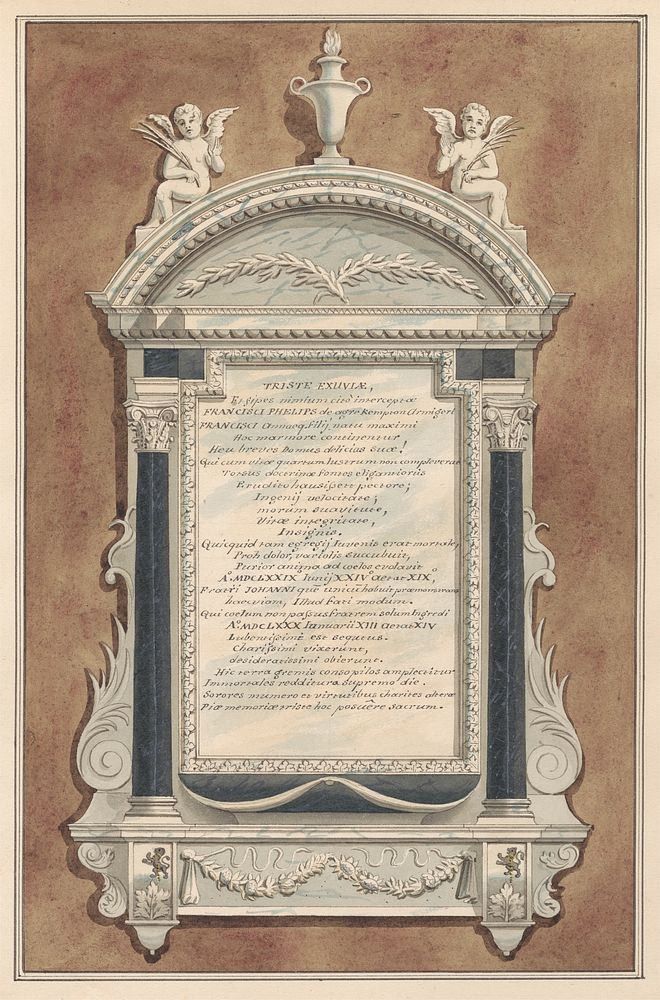 TRISTE EXUVIÆ,
Et Spes nimium cito interceptæ
FRANCISCI PHELIPS de agro Kempton Armigeri
FRANCISCI Annæq. filij natu maximi
Hoc marmore continentur
Heu breves Domus delicias suæ!
Qui cum vitæ quartum lustrum non compleverat
Totius doctrinæ fontes eligantioris
Erudito hausissett pectore;
Ingenij velocitate;
morum suavitute,
Vitæ integritate,
Insignis.
Quicquid tam egregij Iuvenis erat mortale,
Proh dolor, variolis succubuit,
Purior anima ad coelos evolavit
Aº MDCLXXIX Iunij XXIVº aetat XIX,
Fratri JOHANNI quē unicū habuit præmonstrans
hanc viam, Illud fati modum.
Qui coelum non passus fratrem solum Ingredi
Aº MDCLXXX Ianuarii XIII aetat XIV
Lubentissimè est sequtus.
Charissimi vixerunt,
desideratissimi obierunt.
Hic terra gremis consopilos amplectitur
Immortales redditura supremo die.
Sorores numero et virtutibus charites alteræ
Piæ memoriæ triste hoc posuêre sacrum.